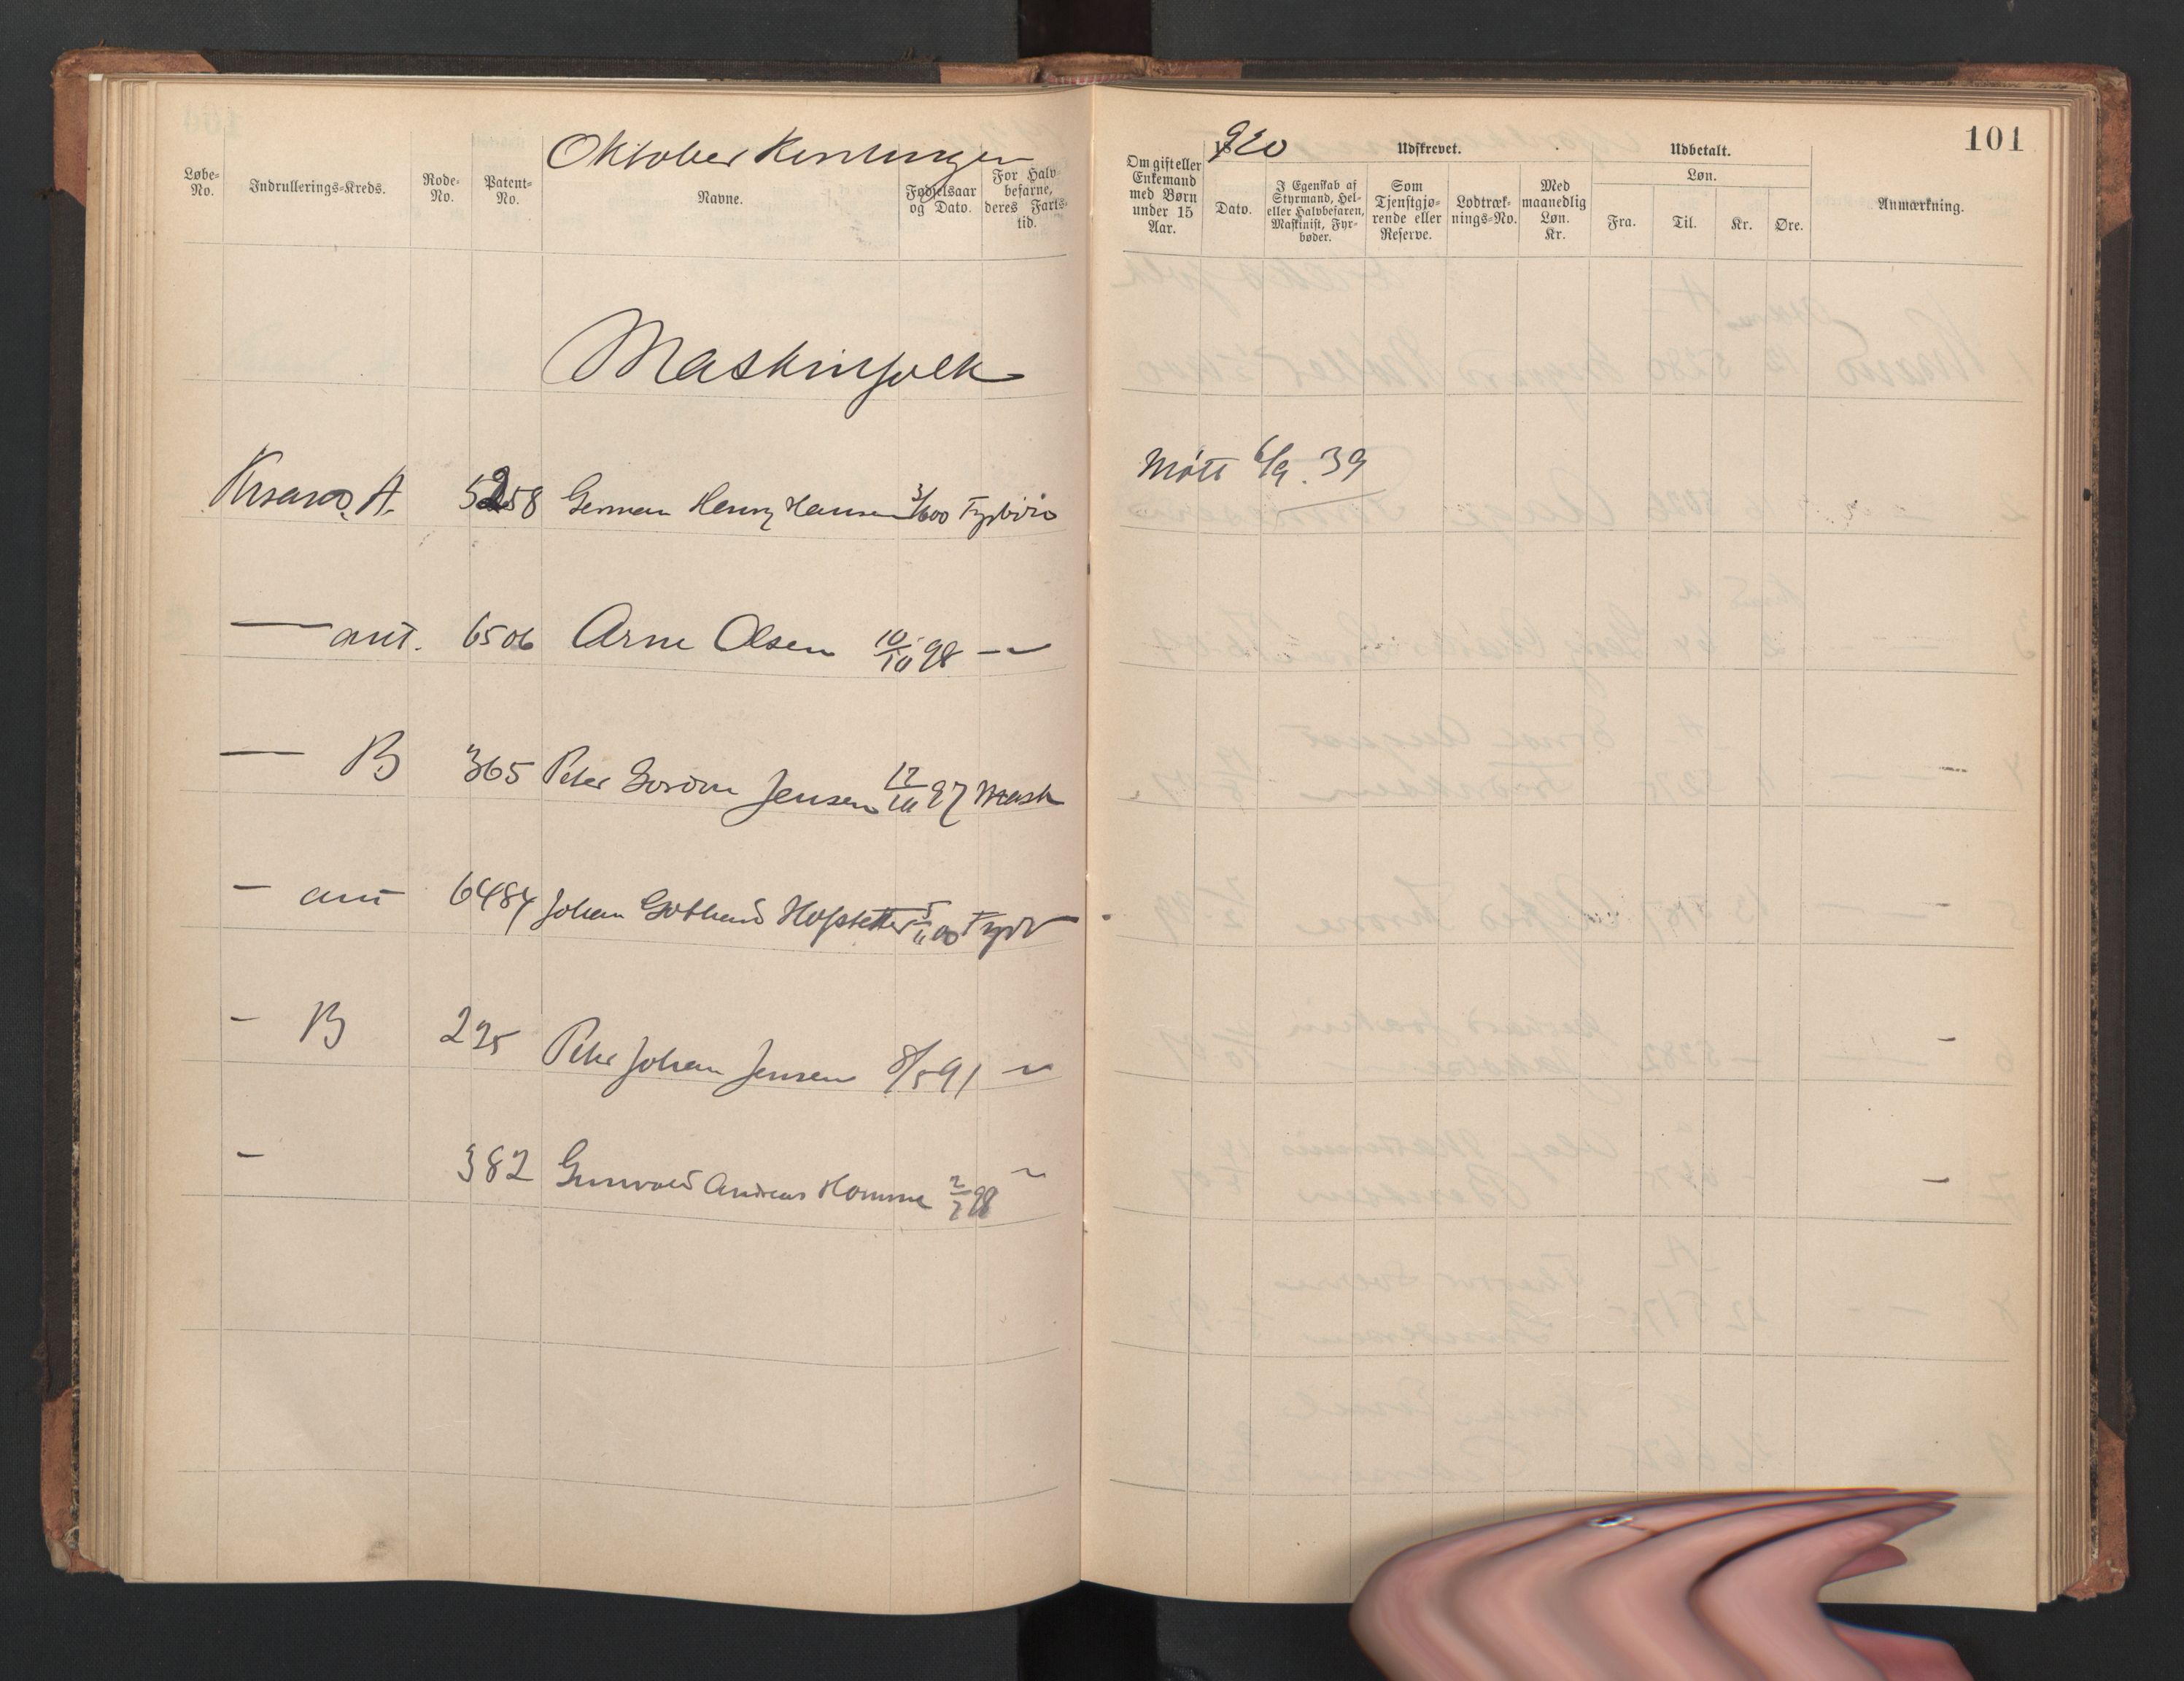 Oktober
920
101
Løbe-No. Indrullerings-Kreds. Rode-No. Patent-No. Navne. Fødselsaar og Dato. For Halvbefarne, deres Fartstid.
Om gift eller Enkemand med Børn under 15 Aar. Dato. Udskrevet. I Egenskab af Styrmand, Hel- eller Halvbefaren, Maskinist, Fyrbøder. Som Tjenstgjørende eller Reserve. Lodtræknings-No. Med maanedlig Løn. Kr. Udbetalt. Løn. Fra. Til. Kr. Øre. Anmærkning.
Maskinfolk
Krsand. A. 5258 German Henry Hansen Møtt 6/9. 39
— ant. 6506 Arne Olsen 10/10 98 —"—
— B 365 Peter Jensen 12/10 97 Mask
— ant 6484 Johan Gothard Hofstetter 5/11 00 Fyrb
- B 225 Peter Johan Jensen 8/5 91 "
- 382 Gunvald Andreas Homme 2/7 98 "